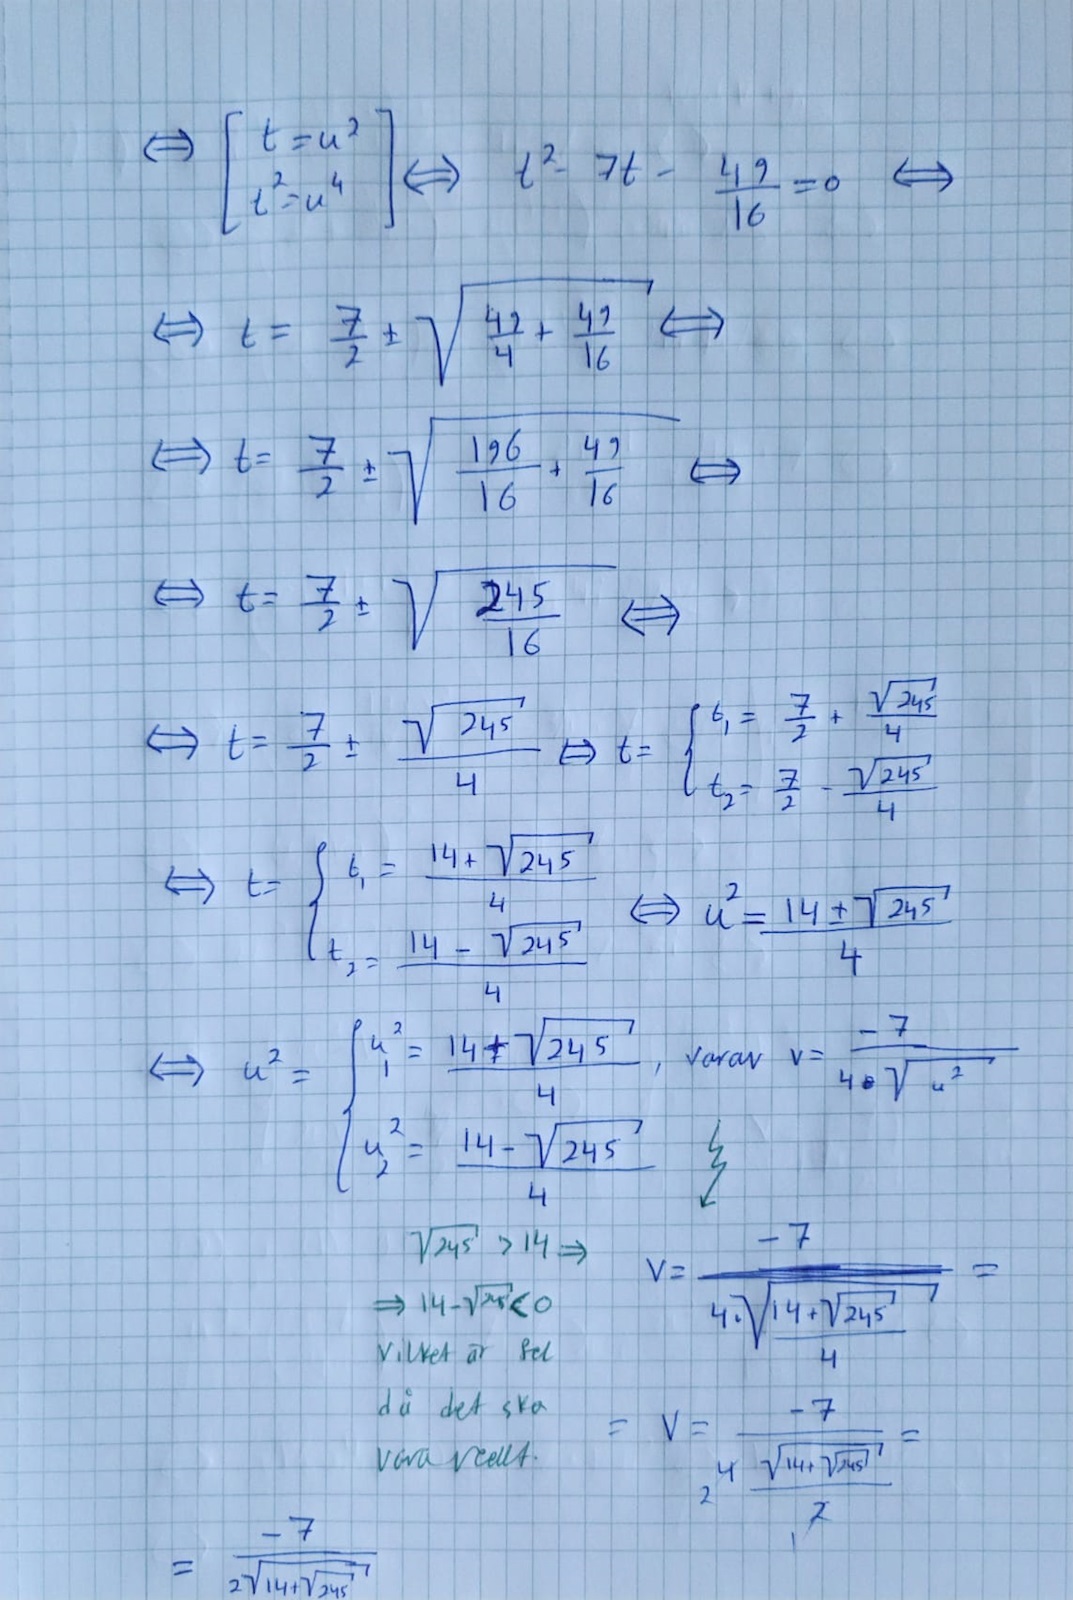 ⇔ [ t = u² ; t² = u⁴ ] ⇔ t² - 7t - 49/16 = 0 ⇔
⇔ t = 7/2 ± √(49/4 + 49/16) ⇔
⇔ t = 7/2 ± √(196/16 + 49/16) ⇔
⇔ t = 7/2 ± √(245/16) ⇔
⇔ t = 7/2 ± √245/4 ⇔ t = { t₁ = 7/2 + √245/4 ; t₂ = 7/2 - √245/4
⇔ t = { t₁ = (14 + √245)/4 ; t₂ = (14 - √245)/4 ⇔ u² = (14 ± √245)/4
⇔ u² = { u₁² = (14 + √245)/4 , varav v = -7/(4·√u²)
u₂² = (14 - √245)/4
√245 > 14 ⇒
⇒ 14 - √245 < 0
vilket är fel
då det ska
vara reellt.
v = -7/(4·√((14 + √245)/4)) =
= v = -7/(4 √(14 + √245)/2) =
2 1
= -7/(2√(14 + √245))